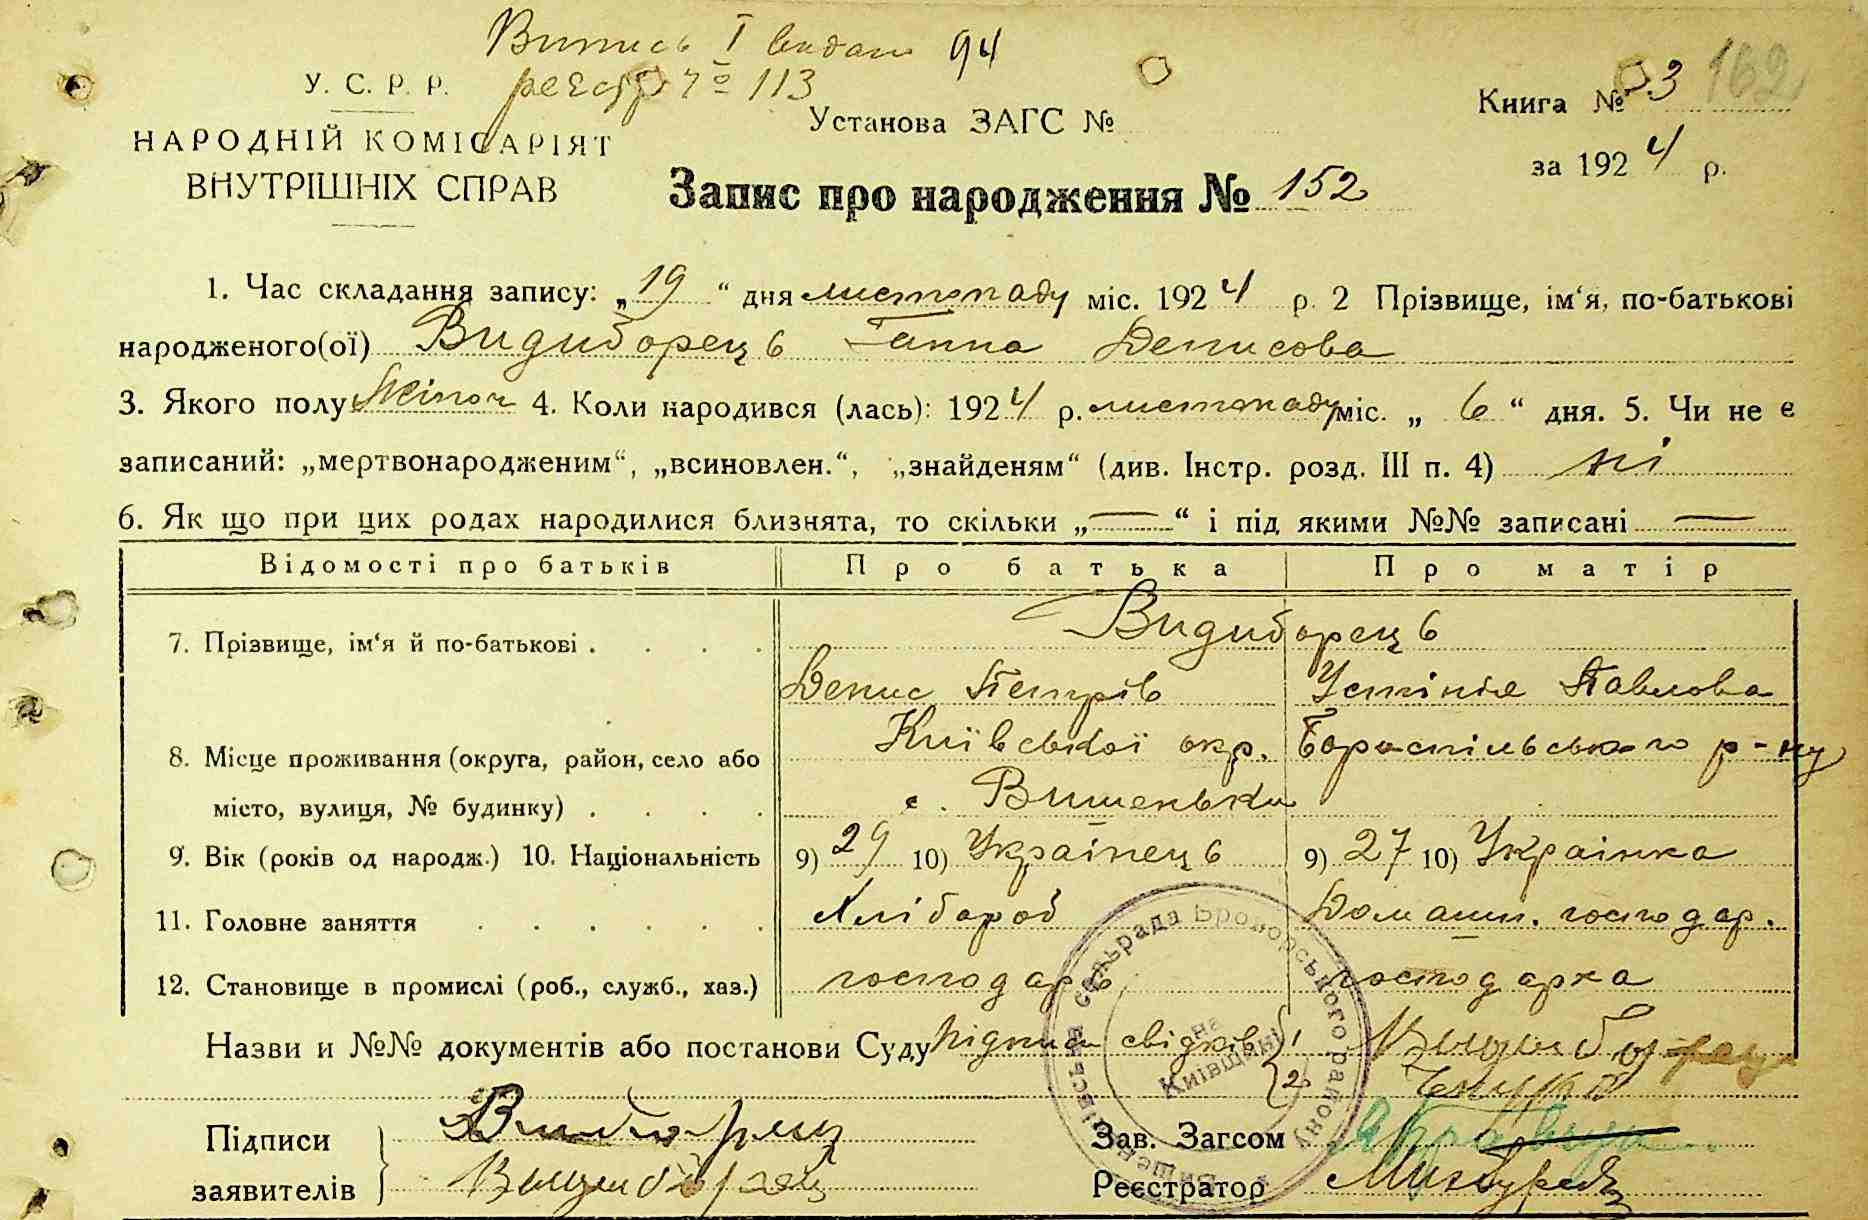 Випись І видан 94
реєстр № 113
У. С. Р. Р.
НАРОДНІЙ КОМІСАРІЯТ
ВНУТРІШНІХ СПРАВ
Установа ЗАГС №
Книга № 3 162
за 1924 р.
Запис про народження № 152
1. Час складання запису: „19“ дня листопаду міс. 1924 р. 2 Прізвище, ім‘я, по-батькові
народженого(ої) Видиборець Ганна Денисова
3. Якого полу жіноч 4. Коли народився (лась): 1924 р. листопаду міс. „6“ дня. 5. Чи не є
записаний: „мертвонародженим“, „всиновлен.“, „знайденям“ (див. Інстр. розд. III п. 4) ні
6. Як що при цих родах народилися близнята, то скільки „—“ і під якими №№ записані —
Відомості про батьків Про батька Про матір
7. Прізвище, ім‘я й по-батькові . . . . Видиборець
Денис Петрів Устінія Павлова
8. Місце проживання (округа, район, село або Київської окр. Бориспільського р-ну
місто, вулиця, № будинку) . . . . с. Вишеньки
9. Вік (років од народж.) 10. Національність 9) 29 10) Українець 9) 27 10) Українка
11. Головне заняття . . . . . . Хлібороб Домашн. господар.
12. Становище в промислі (роб., служб., хаз.) господарь господарка
Назви и №№ документів або постанови Суду Підписи свідків 1 Видиборец
2
Підписи
заявителів
Видиборец
Зав. Загсом
Реєстратор
Вишеньківська сельрада Броворського району
на
Київщині